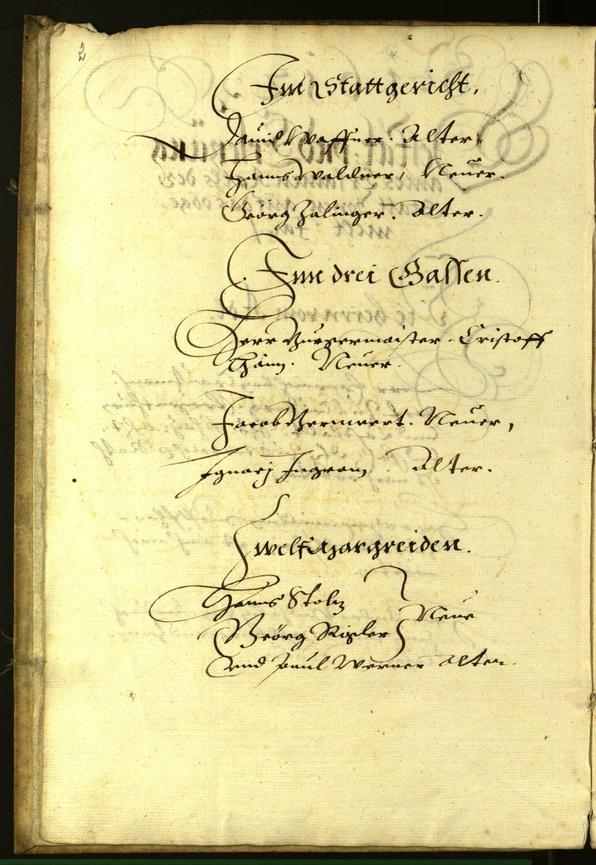 2
Im Stattgericht.
Paul Waffner. Alter.
Hanns Waldner, Neuer.
Georg Zalinger. Alter.
Inn drei Gassen.
Herr Burgermaister. Cristoff
Neuer.
Jacob Vermeert. Neuer,
Ignacj Ingram. Alter.
Zwelfmargreiden.
Hanns Stolz
Geörg Rigler } Neue
vnd Paul Werner Alter.